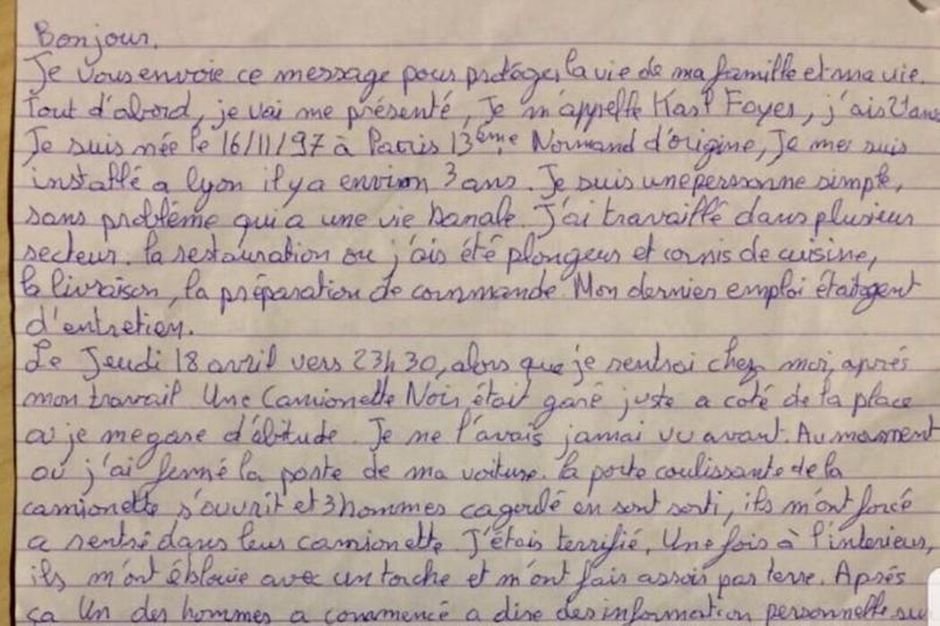 Bonjour.
Je vous envoie ce message pour protéger la vie de ma famille et ma vie.
Tout d'abord, je vai me présenté, Je m'appelle Karl Foyer, j'ais 21 ans
Je suis née le 16/11/97 à Paris 13ème, Normand d'origine, Je me suis
installé a lyon il y a environ 3 ans. Je suis une personne simple,
sans problème qui a une vie banale. J'ai travaillé dans plusieur
secteur. la restauration ou j'ais été plongeur et comis de cuisine,
la livraison, la préparation de commande. Mon dernier emploi était agent
d'entretien.
Le Jeudi 18 avril vers 23h30, alors que je rentrai chez moi, après
mon travail Une Camionette Noir était garé juste a coté de la place
ou je me gare d'abitude. Je ne l'avais jamai vu avant. Au moment
ou j'ai fermé la porte de ma voiture. la porte coulissante de la
camionette s'ouvrit et 3 hommes cagoulé en sont sorti, ils m'ont forcé
a rentré dans leur camionette. J'étais terrifié. Une fois à l'interieur,
ils m'ont éblouie avec un torche et m'ont fais assoir par terre. Après
ça Un des hommes a commencé a dire des information personnelle sur